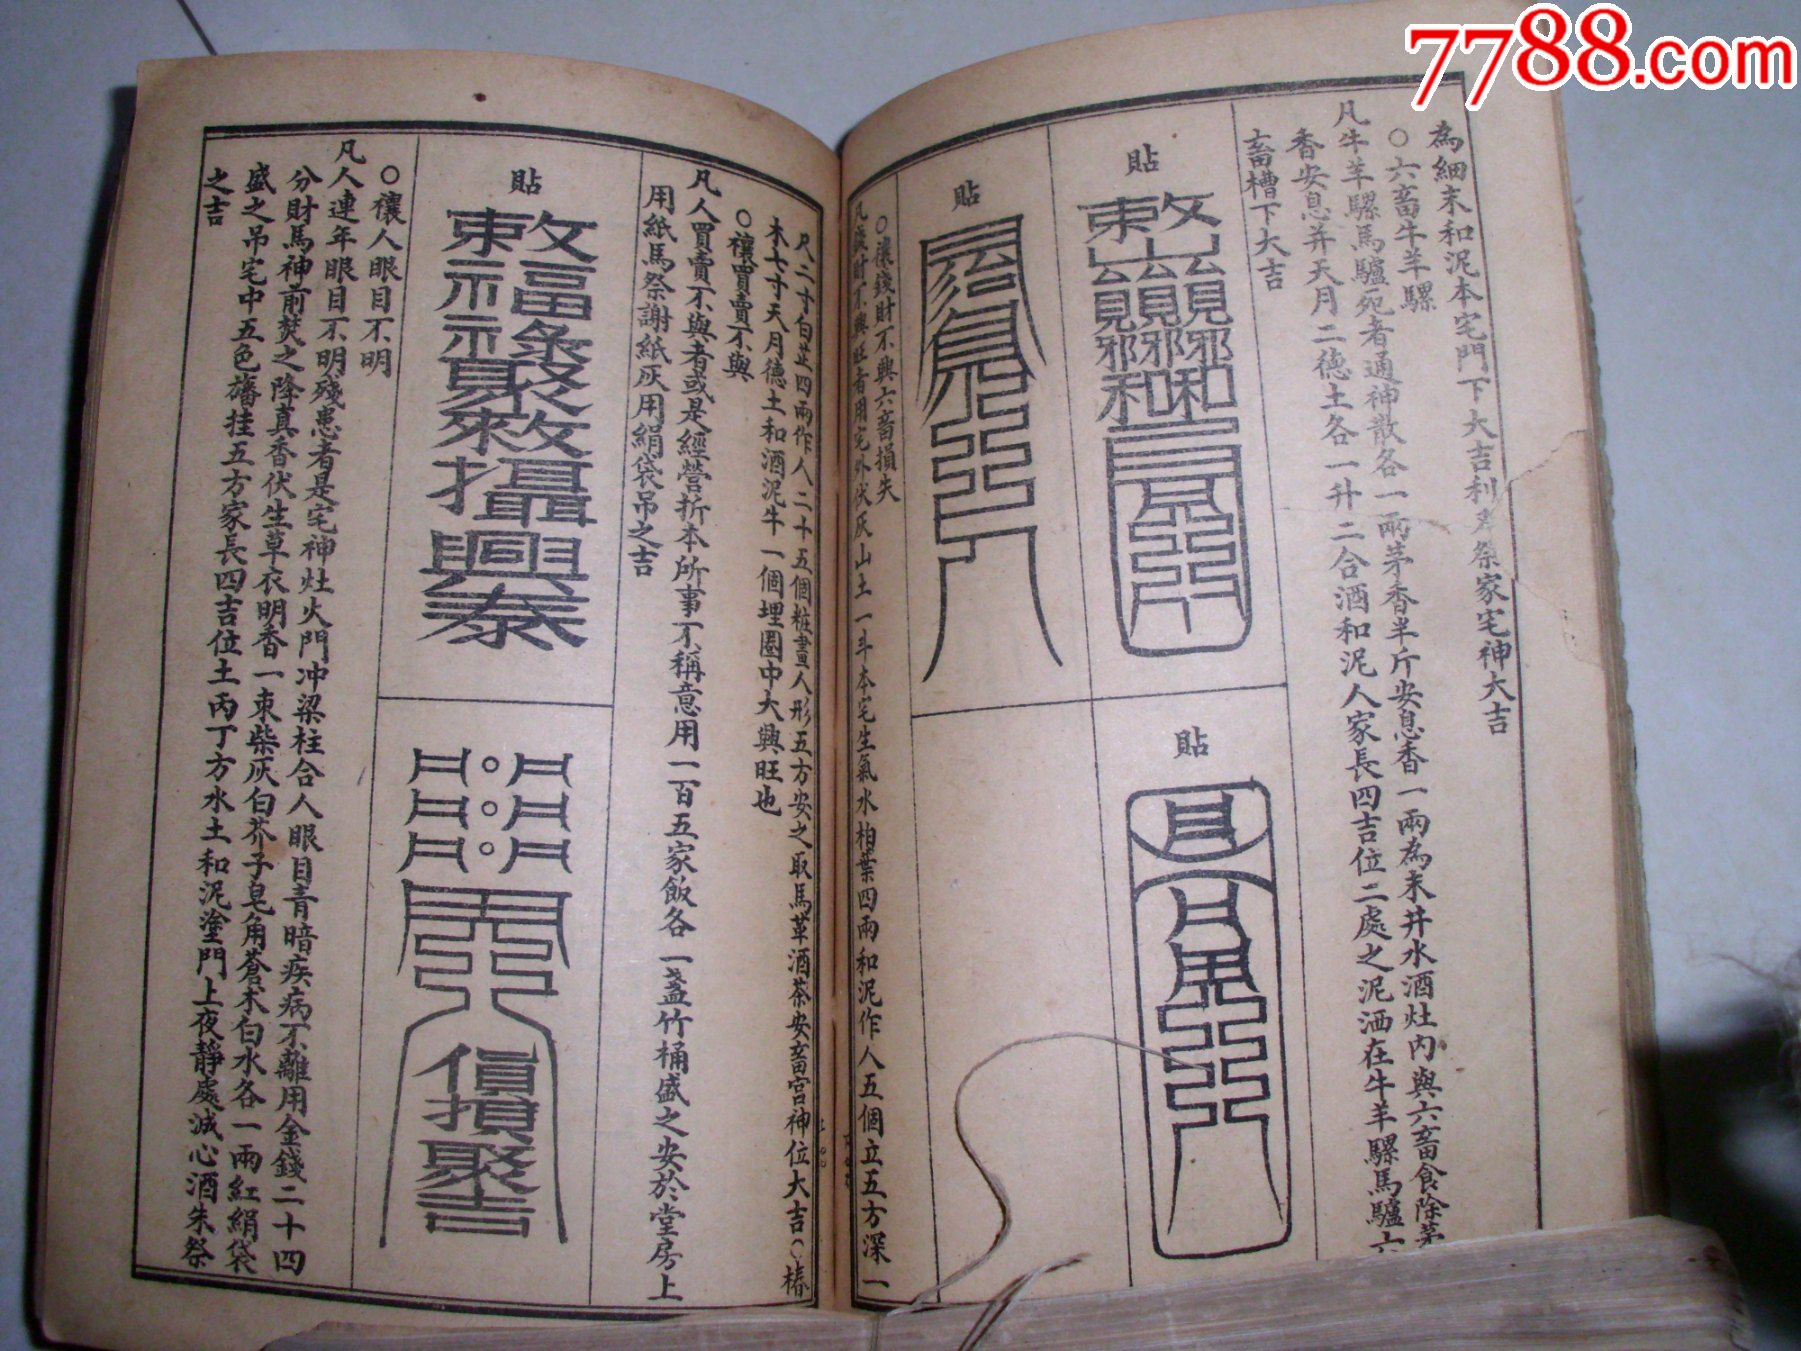 7788.com
為細末和泥本宅門下大吉利祭家宅神大吉
○六畜牛羊騾
凡牛羊騾馬驢死者通神散各一兩茅香半斤安息香一兩為末井水酒灶內與六畜食除茅
香安息并天月二德土各一升二合酒和泥人家長四吉位二處之泥洒在牛羊騾馬驢六
畜槽下大吉
貼
貼
貼
○禳錢財不興六畜損失
凡錢財不興旺者用宅外伏灰山土一斗本宅生氣水柏葉四兩和泥作人五個立五方深一
尺二寸白芷四兩作人二十五個粧畫人形五方安之取馬革酒茶安畜宮神位大吉○椿
木七寸天月德土和酒泥牛一個埋圈中大興旺也
○禳買賣不興
凡人買賣不興者或是經營折本所事不稱意用一百五家飯各一盞竹桶盛之安於堂房上
用紙馬祭謝紙灰用絹袋吊之吉
貼
○禳人眼目不明
凡人連年眼目不明殘患者是宅神灶火門冲梁柱合人眼目青暗疾病不離用金錢二十四
分財馬神前焚之降真香伏生草衣明香一束柴灰白芥子皂角蒼朮白水各一兩紅絹袋
盛之吊宅中五色旛挂五方家長四吉位土丙丁方水土和泥塗門上夜靜處誠心酒朱祭
之吉